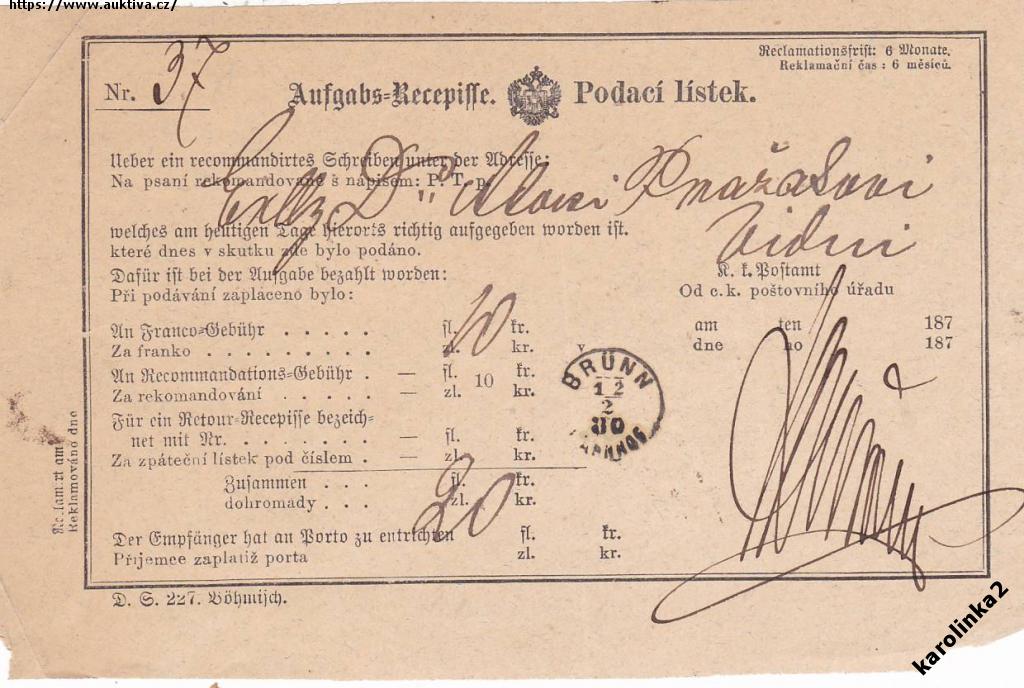 https://www.auktiva.cz/
Reclamationsfrist: 6 Monate.
Reklamační čas: 6 měsíců.
Nr. 37
Aufgabs-Recepisse. Podací lístek.
Ueber ein recommandirtes Schreiben unter der Adresse:
Na psaní rekomandované s nápisem: P. T. p.
Dr Pražákovi
welches am heutigen Tage hierorts richtig aufgegeben worden ist.
Vídni
které dnes v skutku zde bylo podáno.
Dafür ist bei der Aufgabe bezahlt worden:
K. k. Postamt
Při podávání zaplaceno bylo:
Od c. k. poštovního úřadu
An Franco-Gebühr . . . . . fl. 10 kr.
am ten 187
Za franko . . . . . . . . . zl. kr. v
dne ho 187
An Recommandations-Gebühr . — fl. 10 kr.
Za rekomandování . . . . . — zl. kr.
BRÜNN
12
2
80
BAHNHOF
Für ein Retour-Recepisse bezeich-
net mit Nr. . . . . . . . — fl. kr.
Za zpáteční lístek pod číslem . — zl. kr.
Zusammen . . . fl. kr.
dohromady . . . zl. kr.
20
Der Empfänger hat an Porto zu entrichten fl. kr.
Příjemce zaplatiž porta zl. kr.
Reklamirt am
Reklamováno dne
D. S. 227. Böhmisch.
karolinka2